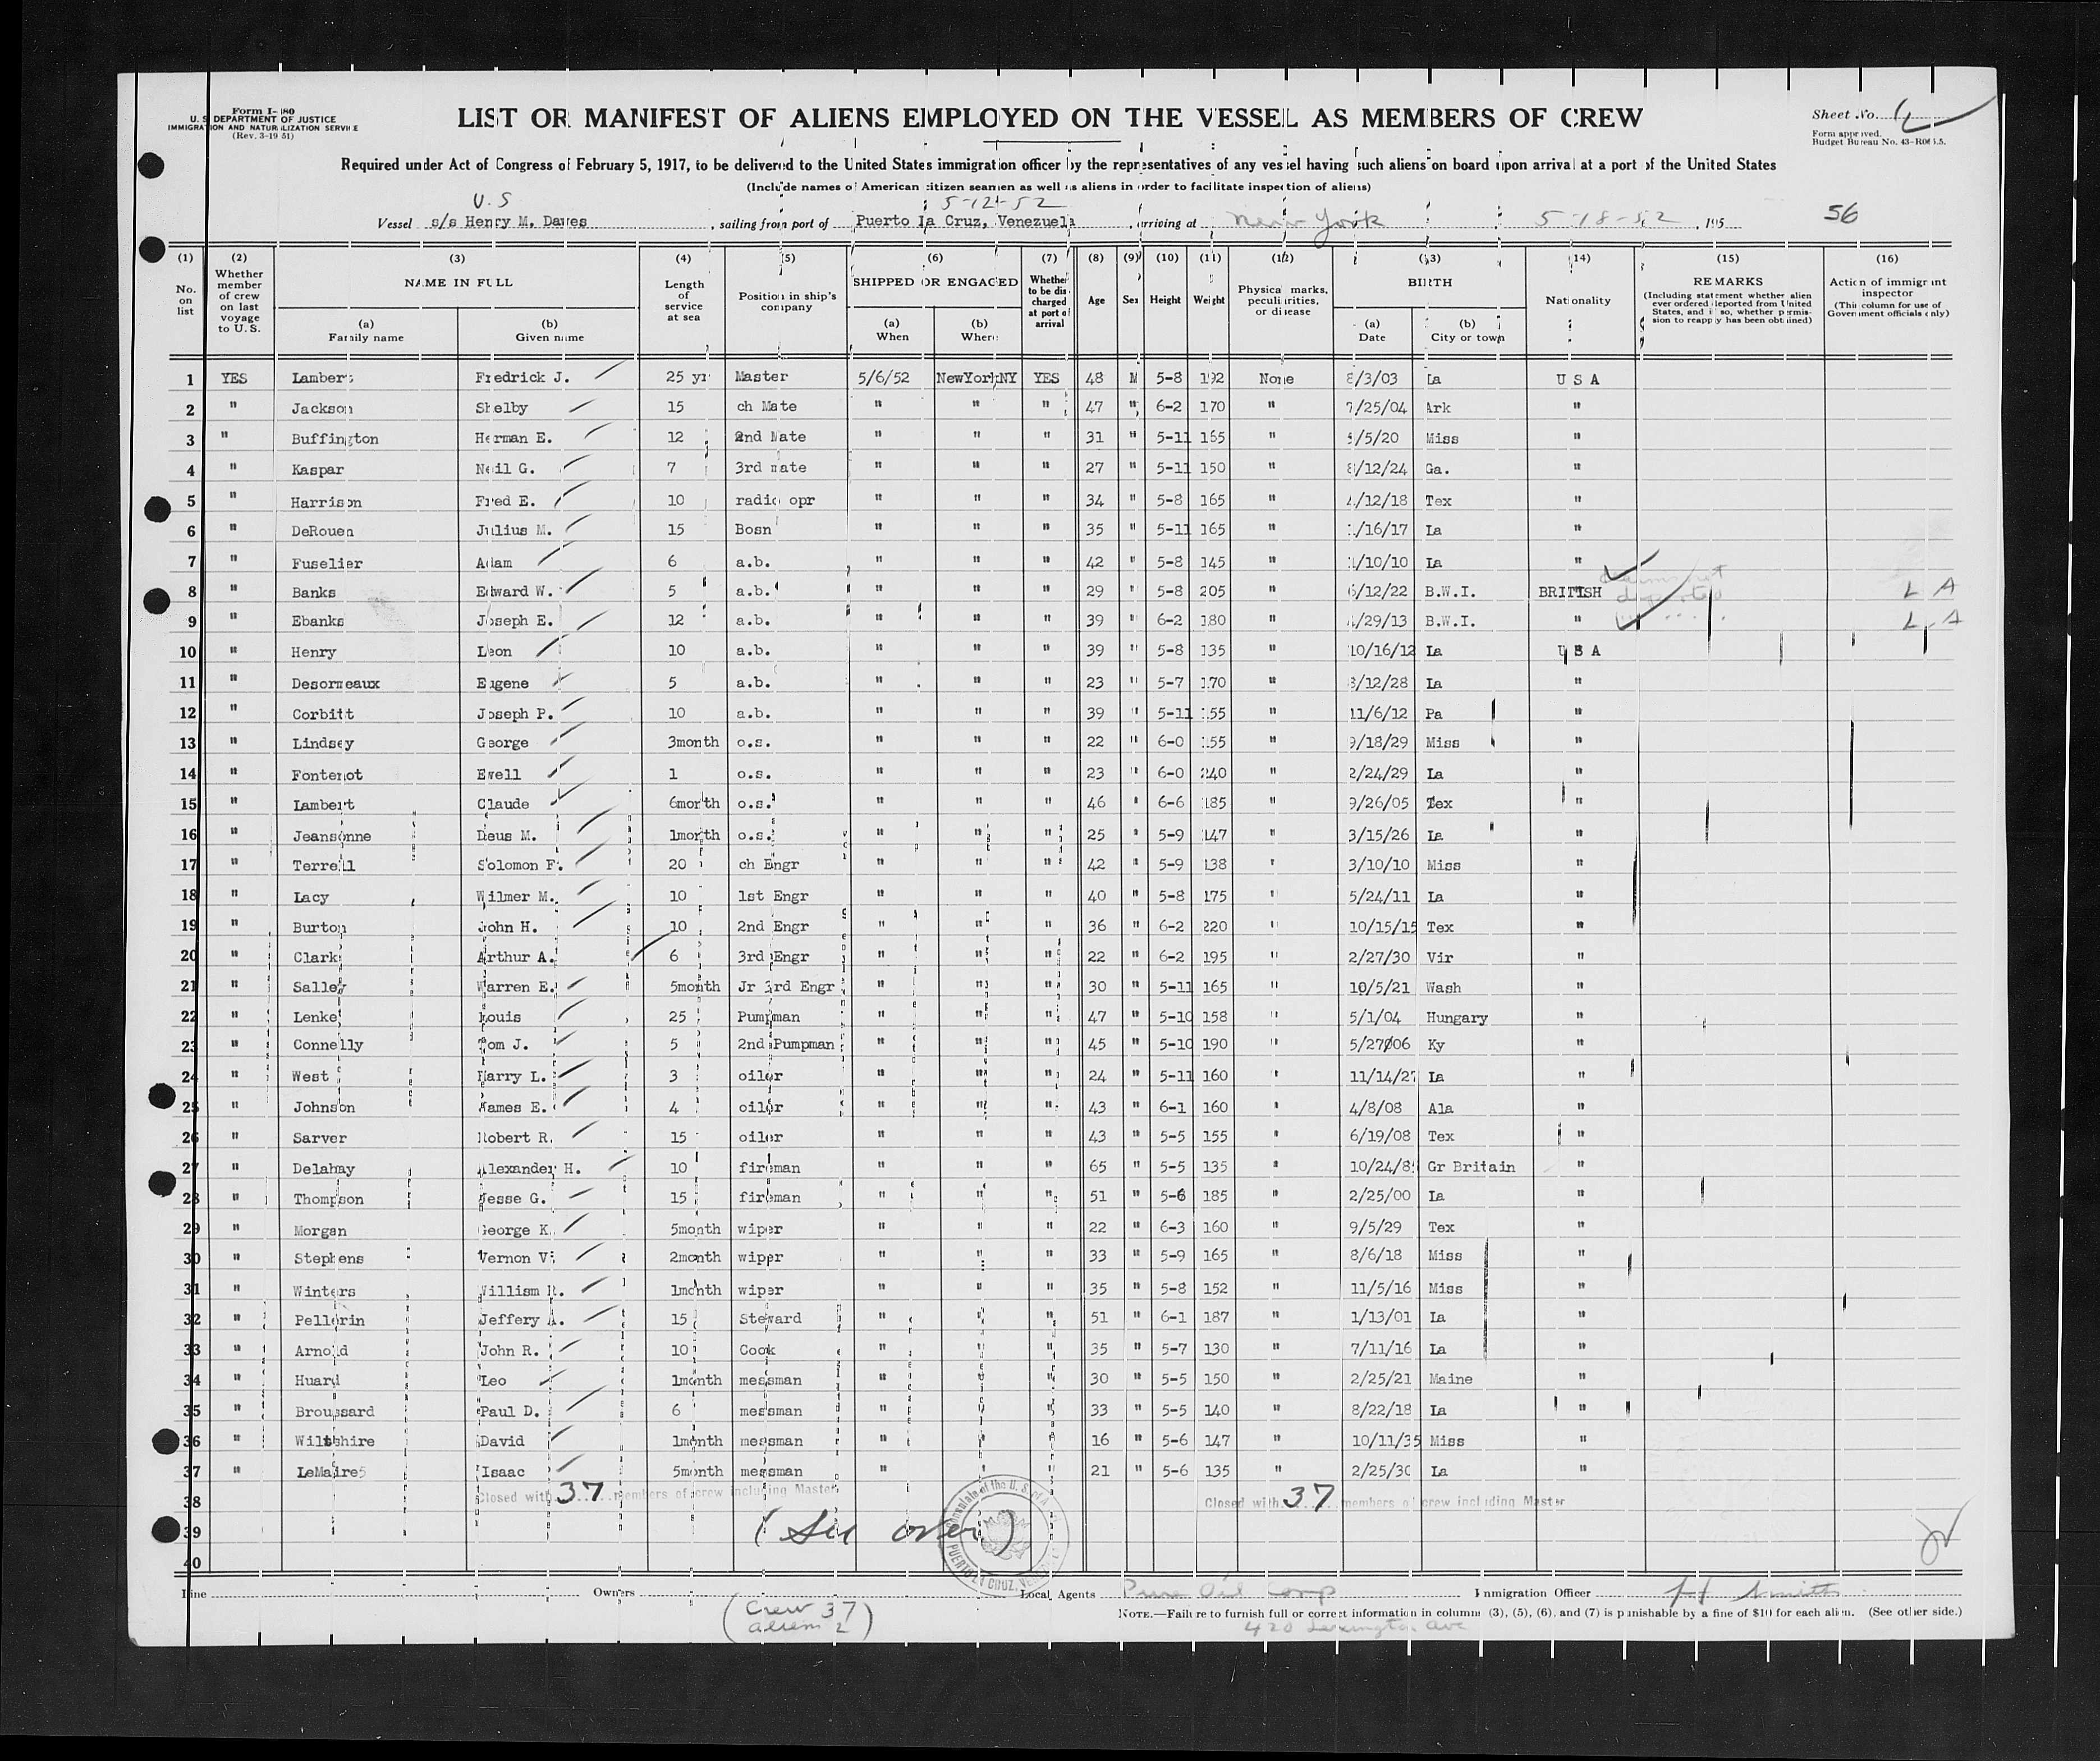 Form I-480
U. S. DEPARTMENT OF JUSTICE
IMMIGRATION AND NATURALIZATION SERVICE
(Rev. 3-19-51)
LIST OR MANIFEST OF ALIENS EMPLOYED ON THE VESSEL AS MEMBERS OF CREW
Sheet No.
Form approved.
Budget Bureau No. 43-R065.5.
Required under Act of Congress of February 5, 1917, to be delivered to the United States immigration officer by the representatives of any vessel having such aliens on board upon arrival at a port of the United States
(Include names of American citizen seamen as well as aliens in order to facilitate inspection of aliens)
U.S 5-12-52
Vessel s/s Henry M. Dawes, sailing from port of Puerto la Cruz, Venezuela, arriving at New York 5-18-52, 195 56
(1) No. on list (2) Whether member of crew on last voyage to U. S. (3) NAME IN FULL (a) Family name (b) Given name (4) Length of service at sea (5) Position in ship's company (6) SHIPPED OR ENGAGED (a) When (b) Where (7) Whether to be discharged at port of arrival (8) Age (9) Sex (10) Height (11) Weight (12) Physical marks, peculiarities, or disease (13) BIRTH (a) Date (b) City or town (14) Nationality (15) REMARKS (Including statement whether alien ever ordered deported from United States, and if so, whether permission to reapply has been obtained) (16) Action of immigrant inspector (This column for use of Government officials only)
1 YES Lambert Fredrick J. 25 yr Master 5/6/52 NewYorkNY YES 48 M 5-8 192 None 8/3/03 La U S A
2 " Jackson Shelby 15 ch Mate " " " 47 " 6-2 170 " 7/25/04 Ark "
3 " Buffington Herman E. 12 2nd Mate " " " 31 " 5-11 165 " /5/20 Miss "
4 " Kaspar Neil G. 7 3rd mate " " " 27 " 5-11 150 " 8/12/24 Ga. "
5 " Harrison Fred E. 10 radio opr " " " 34 " 5-8 165 " 4/12/18 Tex "
6 " DeRouen Julius M. 15 Bosn " " " 35 " 5-11 165 " 1/16/17 La "
7 " Fuselier Adam 6 a.b. " " " 42 " 5-8 145 " 1/10/10 La "
8 " Banks Edward W. 5 a.b. " " " 29 " 5-8 205 " 6/12/22 B.W.I. BRITISH deported L A
9 " Ebanks Joseph E. 12 a.b. " " " 39 " 6-2 180 " 4/29/13 B.W.I. " L A
10 " Henry Leon 10 a.b. " " " 39 " 5-8 135 " 10/16/12 La U S A
11 " Desormeaux Eugene 5 a.b. " " " 23 " 5-7 170 " 8/12/28 La "
12 " Corbitt Joseph P. 10 a.b. " " " 39 " 5-11 155 " 11/6/12 Pa "
13 " Lindsey George 3month o.s. " " " 22 " 6-0 155 " 9/18/29 Miss "
14 " Fontenot Ewell 1 o.s. " " " 23 " 6-0 240 " 2/24/29 La "
15 " Lambert Claude 6month o.s. " " " 46 " 6-6 185 " 9/26/05 Tex "
16 " Jeansonne Deus M. 1month o.s. " " " 25 " 5-9 147 " 3/15/26 La "
17 " Terrell Solomon F. 20 ch Engr " " " 42 " 5-9 138 " 3/10/10 Miss "
18 " Lacy Wilmer M. 10 1st Engr " " " 40 " 5-8 175 " 5/24/11 La "
19 " Burton John H. 10 2nd Engr " " " 36 " 6-2 220 " 10/15/15 Tex "
20 " Clark Arthur A. 6 3rd Engr " " " 22 " 6-2 195 " 2/27/30 Vir "
21 " Salley Warren E. 5month Jr 3rd Engr " " " 30 " 5-11 165 " 10/5/21 Wash "
22 " Lenke Louis 25 Pumpman " " " 47 " 5-10 158 " 5/1/04 Hungary "
23 " Connelly Tom J. 5 2nd Pumpman " " " 45 " 5-10 190 " 5/27/06 Ky "
24 " West Harry L. 3 oiler " " " 24 " 5-11 160 " 11/14/27 La "
25 " Johnson James E. 4 oiler " " " 43 " 6-1 160 " 4/8/08 Ala "
26 " Sarver Robert R. 15 oiler " " " 43 " 5-5 155 " 6/19/08 Tex "
27 " Delahay Alexander H. 10 fireman " " " 65 " 5-5 135 " 10/24/8 Gr Britain "
28 " Thompson Jesse G. 15 fireman " " " 51 " 5-6 185 " 2/25/00 La "
29 " Morgan George K. 5month wiper " " " 22 " 6-3 160 " 9/5/29 Tex "
30 " Stephens Vernon V. 2month wiper " " " 33 " 5-9 165 " 8/6/18 Miss "
31 " Winters William R. 1month wiper " " " 35 " 5-8 152 " 11/5/16 Miss "
32 " Pellerin Jeffery A. 15 Steward " " " 51 " 6-1 187 " 1/13/01 La "
33 " Arnold John R. 10 Cook " " " 35 " 5-7 130 " 7/11/16 La "
34 " Huard Leo 1month messman " " " 30 " 5-5 150 " 2/25/21 Maine "
35 " Broussard Paul D. 6 messman " " " 33 " 5-5 140 " 8/22/18 La "
36 " Wiltshire David 1month messman " " " 16 " 5-6 147 " 10/11/35 Miss "
37 " LeMaire David Isaac 5month messman " " " 21 " 5-6 135 " 2/25/30 La "
38 Closed with 37 members of crew including Master Closed with 37 members of crew including Master
39 (See over)
40
Consulate of the U. S. of A. PUERTO LA CRUZ, VENEZUELA
Line Owners Local Agents Pure Oil Corp Immigration Officer H Smith
(Crew 37
aliens 2)
NOTE.—Failure to furnish full or correct information in columns (3), (5), (6), and (7) is punishable by a fine of $10 for each alien. (See other side.)
420 Lexington Ave